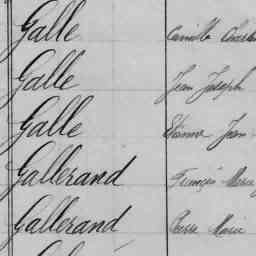 Galle Camille Charles
Galle Jean Joseph
Galle Etienne Jean
Gallerand François Marie
Gallerand Pierre Marie